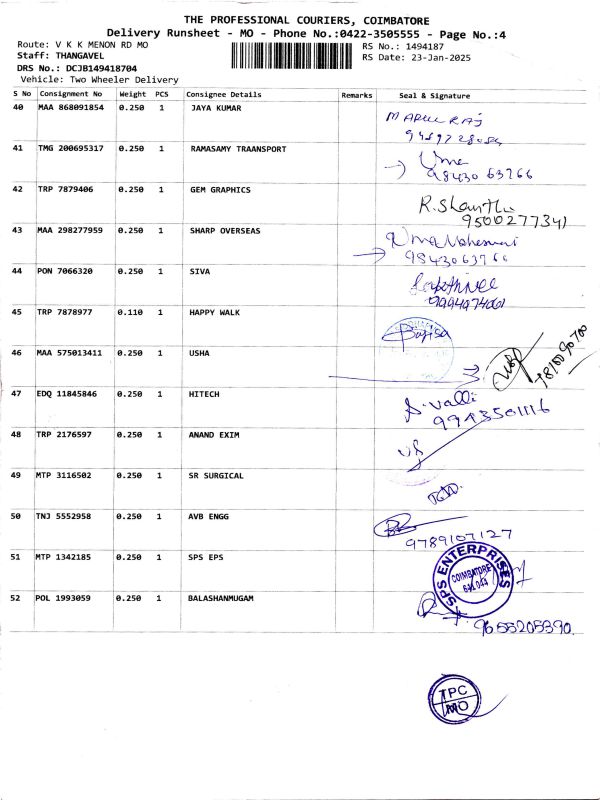 THE PROFESSIONAL COURIERS, COIMBATORE
Delivery Runsheet - MO - Phone No.:0422-3505555 - Page No.:4
Route: V K K MENON RD MO RS No.: 1494187
Staff: THANGAVEL RS Date: 23-Jan-2025
DRS No.: DCJB149418704
Vehicle: Two Wheeler Delivery
S No Consignment No Weight PCS Consignee Details Remarks Seal & Signature
40 MAA 868091854 0.250 1 JAYA KUMAR
41 TMG 200695317 0.250 1 RAMASAMY TRAANSPORT
Uma
98430 63766
42 TRP 7879406 0.250 1 GEM GRAPHICS
R.Shanthi
9500277341
43 MAA 298277959 0.250 1 SHARP OVERSEAS
Uma Maheswari
9843063766
44 PON 7066320 0.250 1 SIVA
9994974061
45 TRP 7878977 0.110 1 HAPPY WALK
46 MAA 575013411 0.250 1 USHA
47 EDQ 11845846 0.250 1 HITECH
S. Valli
9943501116
48 TRP 2176597 0.250 1 ANAND EXIM
49 MTP 3116502 0.250 1 SR SURGICAL
50 TNJ 5552958 0.250 1 AVB ENGG
9789107127
51 MTP 1342185 0.250 1 SPS EPS
SPS ENTERPRISES
COIMBATORE
641 044
52 POL 1993059 0.250 1 BALASHANMUGAM
9655205390
TPC
MO